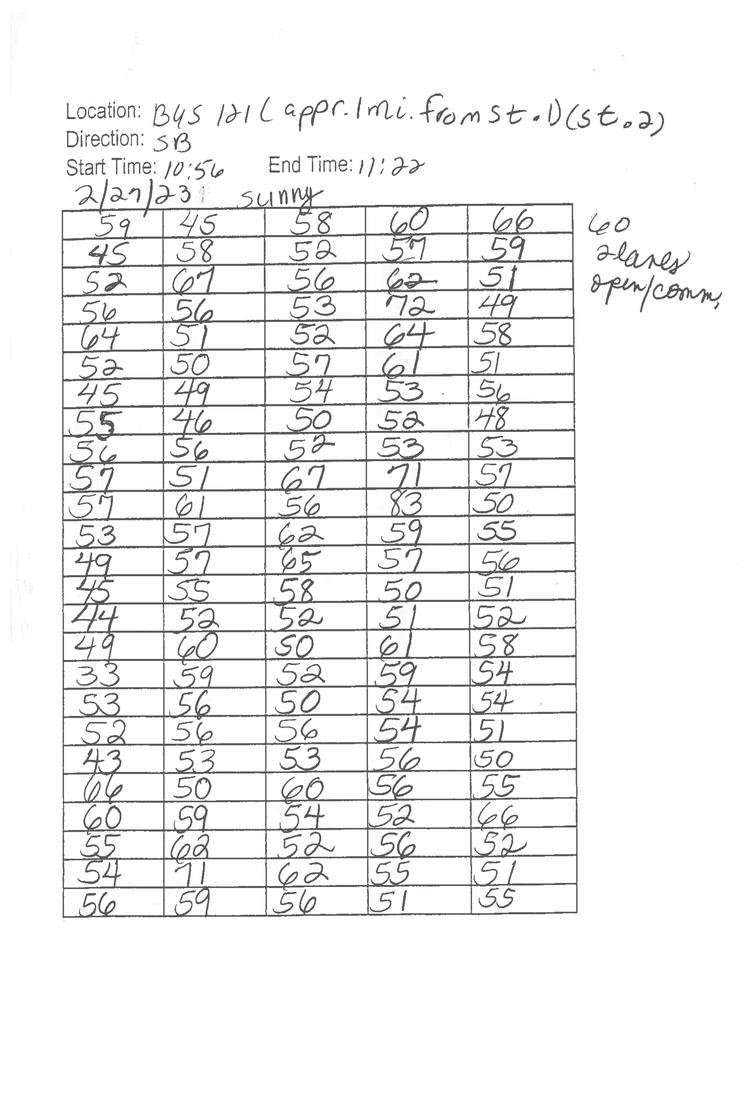 Location: BUS 121 ( appr. 1 mi. from st. 1) (st. 2)
Direction: SB
Start Time: 10:56 End Time: 11:22
2/27/23 sunny
59 45 58 60 66 60
45 58 52 57 59 2 lanes
52 67 56 62 51 open/comm.
56 56 53 72 49
64 51 52 64 58
52 50 57 61 51
45 49 54 53 56
55 46 50 52 48
56 56 52 53 53
57 51 67 71 57
57 61 56 83 50
53 57 62 59 55
49 57 65 57 56
45 55 58 50 51
44 52 52 51 52
49 60 50 61 58
33 59 52 59 54
53 56 50 54 54
52 56 56 54 51
43 53 53 56 50
66 50 60 56 55
60 59 54 52 66
55 62 52 56 52
54 71 62 55 51
56 59 56 51 55